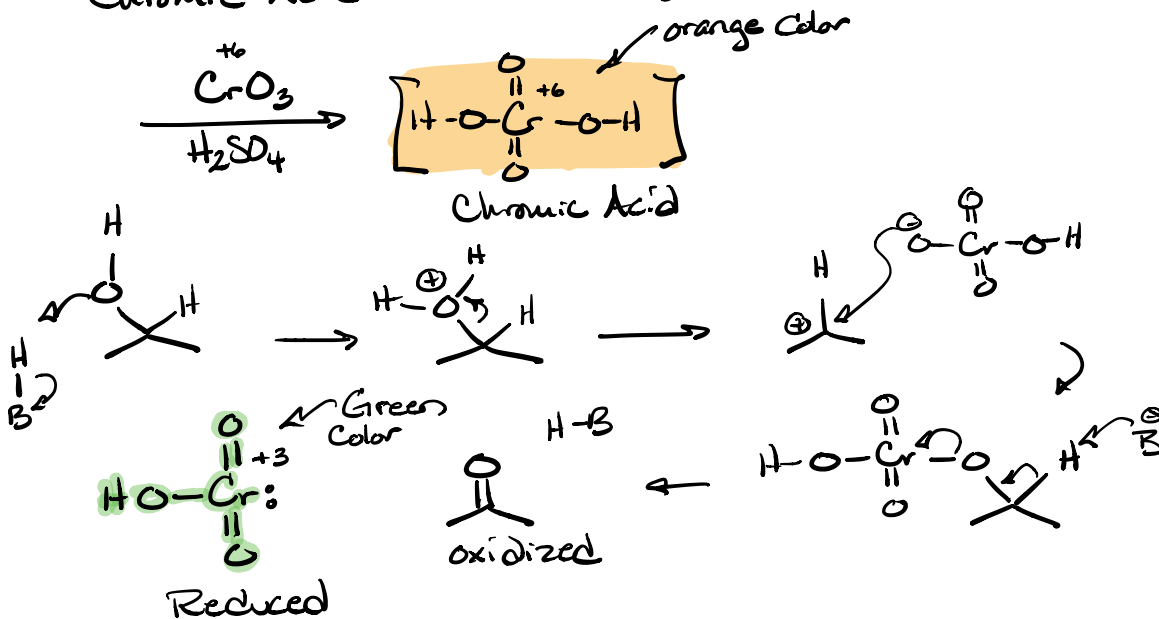 Chromic Acid
orange Color
+6
CrO3
H2SO4
O
+6
H-O-Cr-O-H
O
Chromic Acid
H
O
H
H
B
H
⊕
H-O
H
H
⊕
O
⊖
O-Cr-O-H
O
Green
Color
O
+3
H O-Cr:
O
Reduced
H-B
O
oxidized
O
H-O-Cr-O
O
H
⊖
B